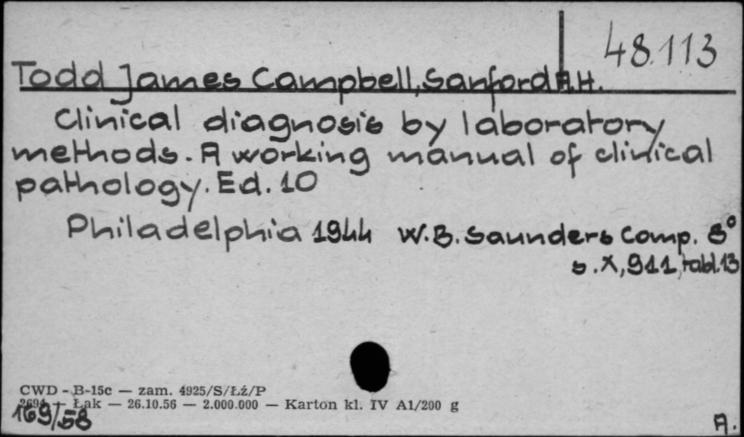 48.113
Todd James Campbell, Sanford A.H.
Clinical diagnosis by laboratory
methods. A working manual of clinical
pathology. Ed. 10
Philadelphia 1944 W.B. Saunders Comp. 8°
s. X, 911, tabl. 13
CWD - B-15c — zam. 4925/S/Łź/P
2694 — Łak — 26.10.56 — 2.000.000 — Karton kl. IV A1/200 g
169/58
A.